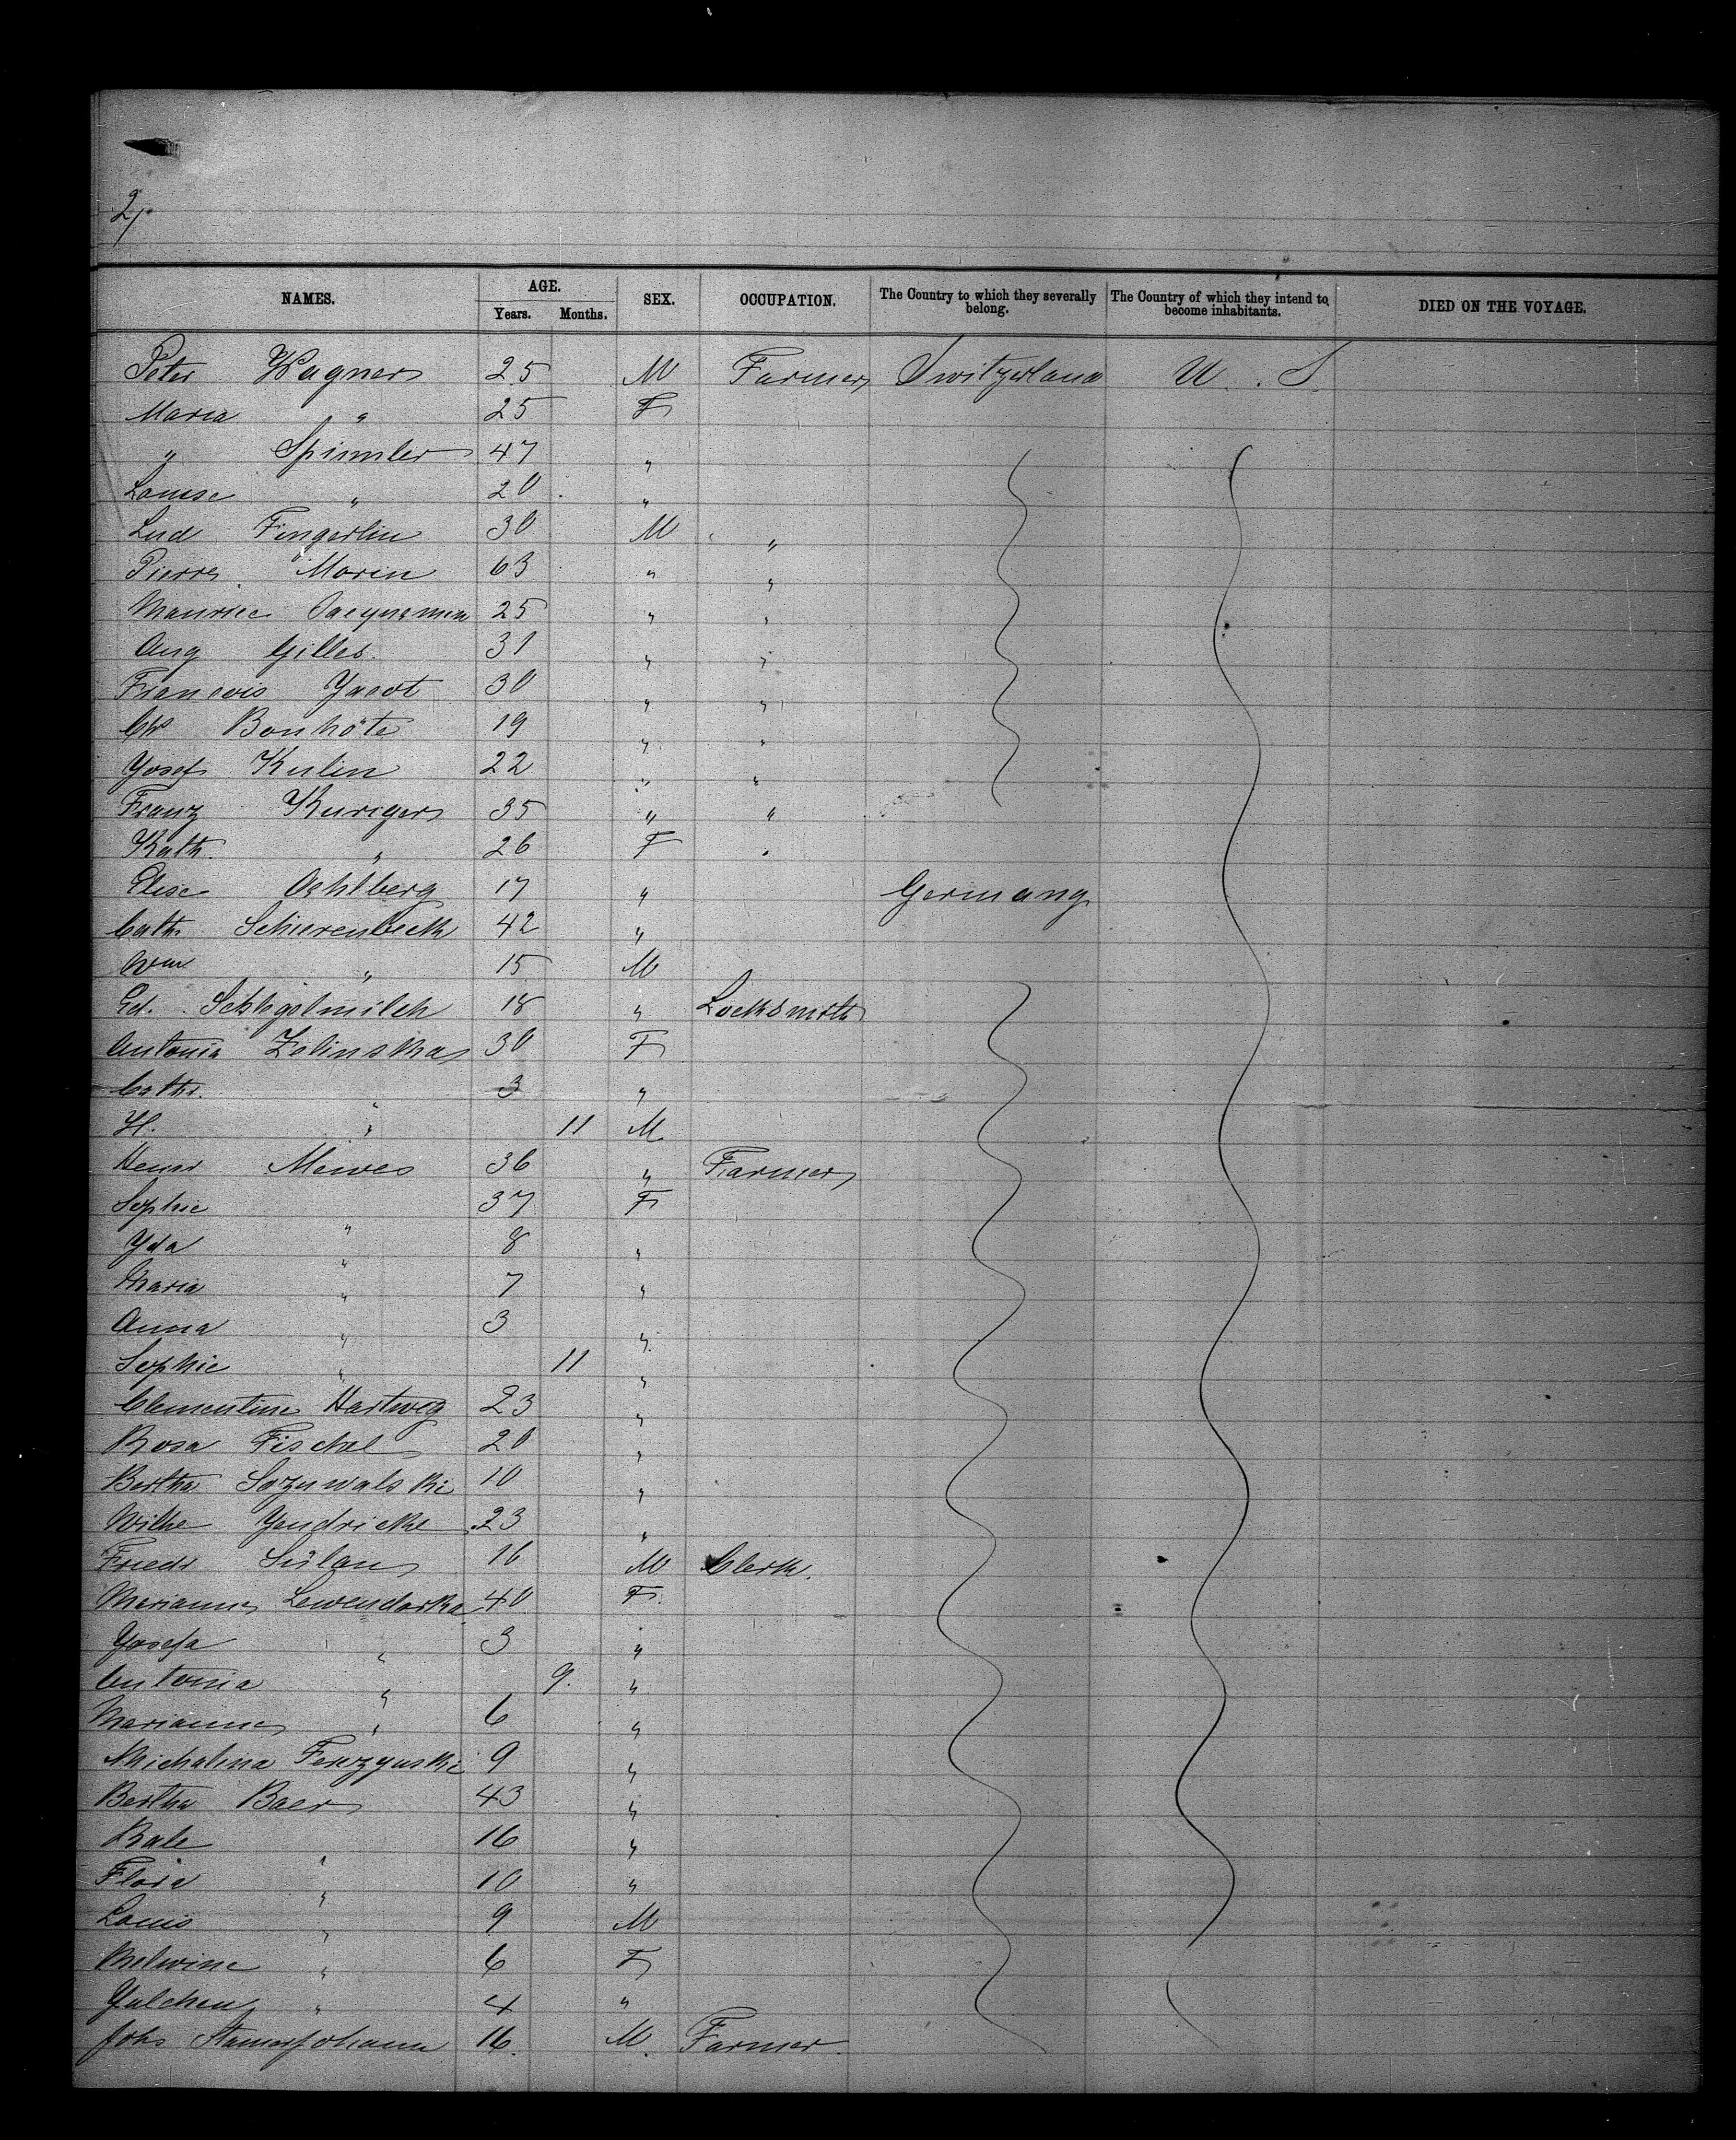 2/.
NAMES. AGE. SEX. OCCUPATION. The Country to which they severally belong. The Country of which they intend to become inhabitants. DIED ON THE VOYAGE.
Years. Months.
Peter Wagner 25 M Farmer Switzerland U. S.
Maria " 25 F
" Spimler 47 "
Louise " 20 "
Lud Fingerlin 30 M "
Pierre Morin 63 " "
Maurice 25 " "
Aug Gilles. 31 " "
Francois Yacot 30 " "
Chs Bonhôte 19 " "
Yosef Kulin 22 " "
Franz Kuriger 35 " "
Kath. " 26 F "
Elise Oehlberg 17 " Germany
Cath. Schierenbeck 42 "
Wm " 15 M
Ed. Schlegelmilch 18 " Locksmith
Antonia Zelinska 30 F
Cathr. " 3 "
H. " 11 M
Henri Mewes 36 " Farmer
Sophie " 37 F
Yda " 8 "
Maria " 7 "
Anna " 3 "
Sophie " 11 "
Clementine Hartwig 23 "
Rosa Fischel 20 "
Bertha 10 "
Wilhe Yendricke 23 "
Friedr 16 M Clerk.
Marianna Lewendarska 40 F.
Yosefa " 3 "
Antonia " 9. "
Marianna " 6 "
Michalina 9 "
Bertha Baer 43 "
Rale " 16 "
Flora " 10 "
Louis " 9 M
Melwine " 6 F
Yulchen " 4 "
Johs Stamerjohann 16. M. Farmer.